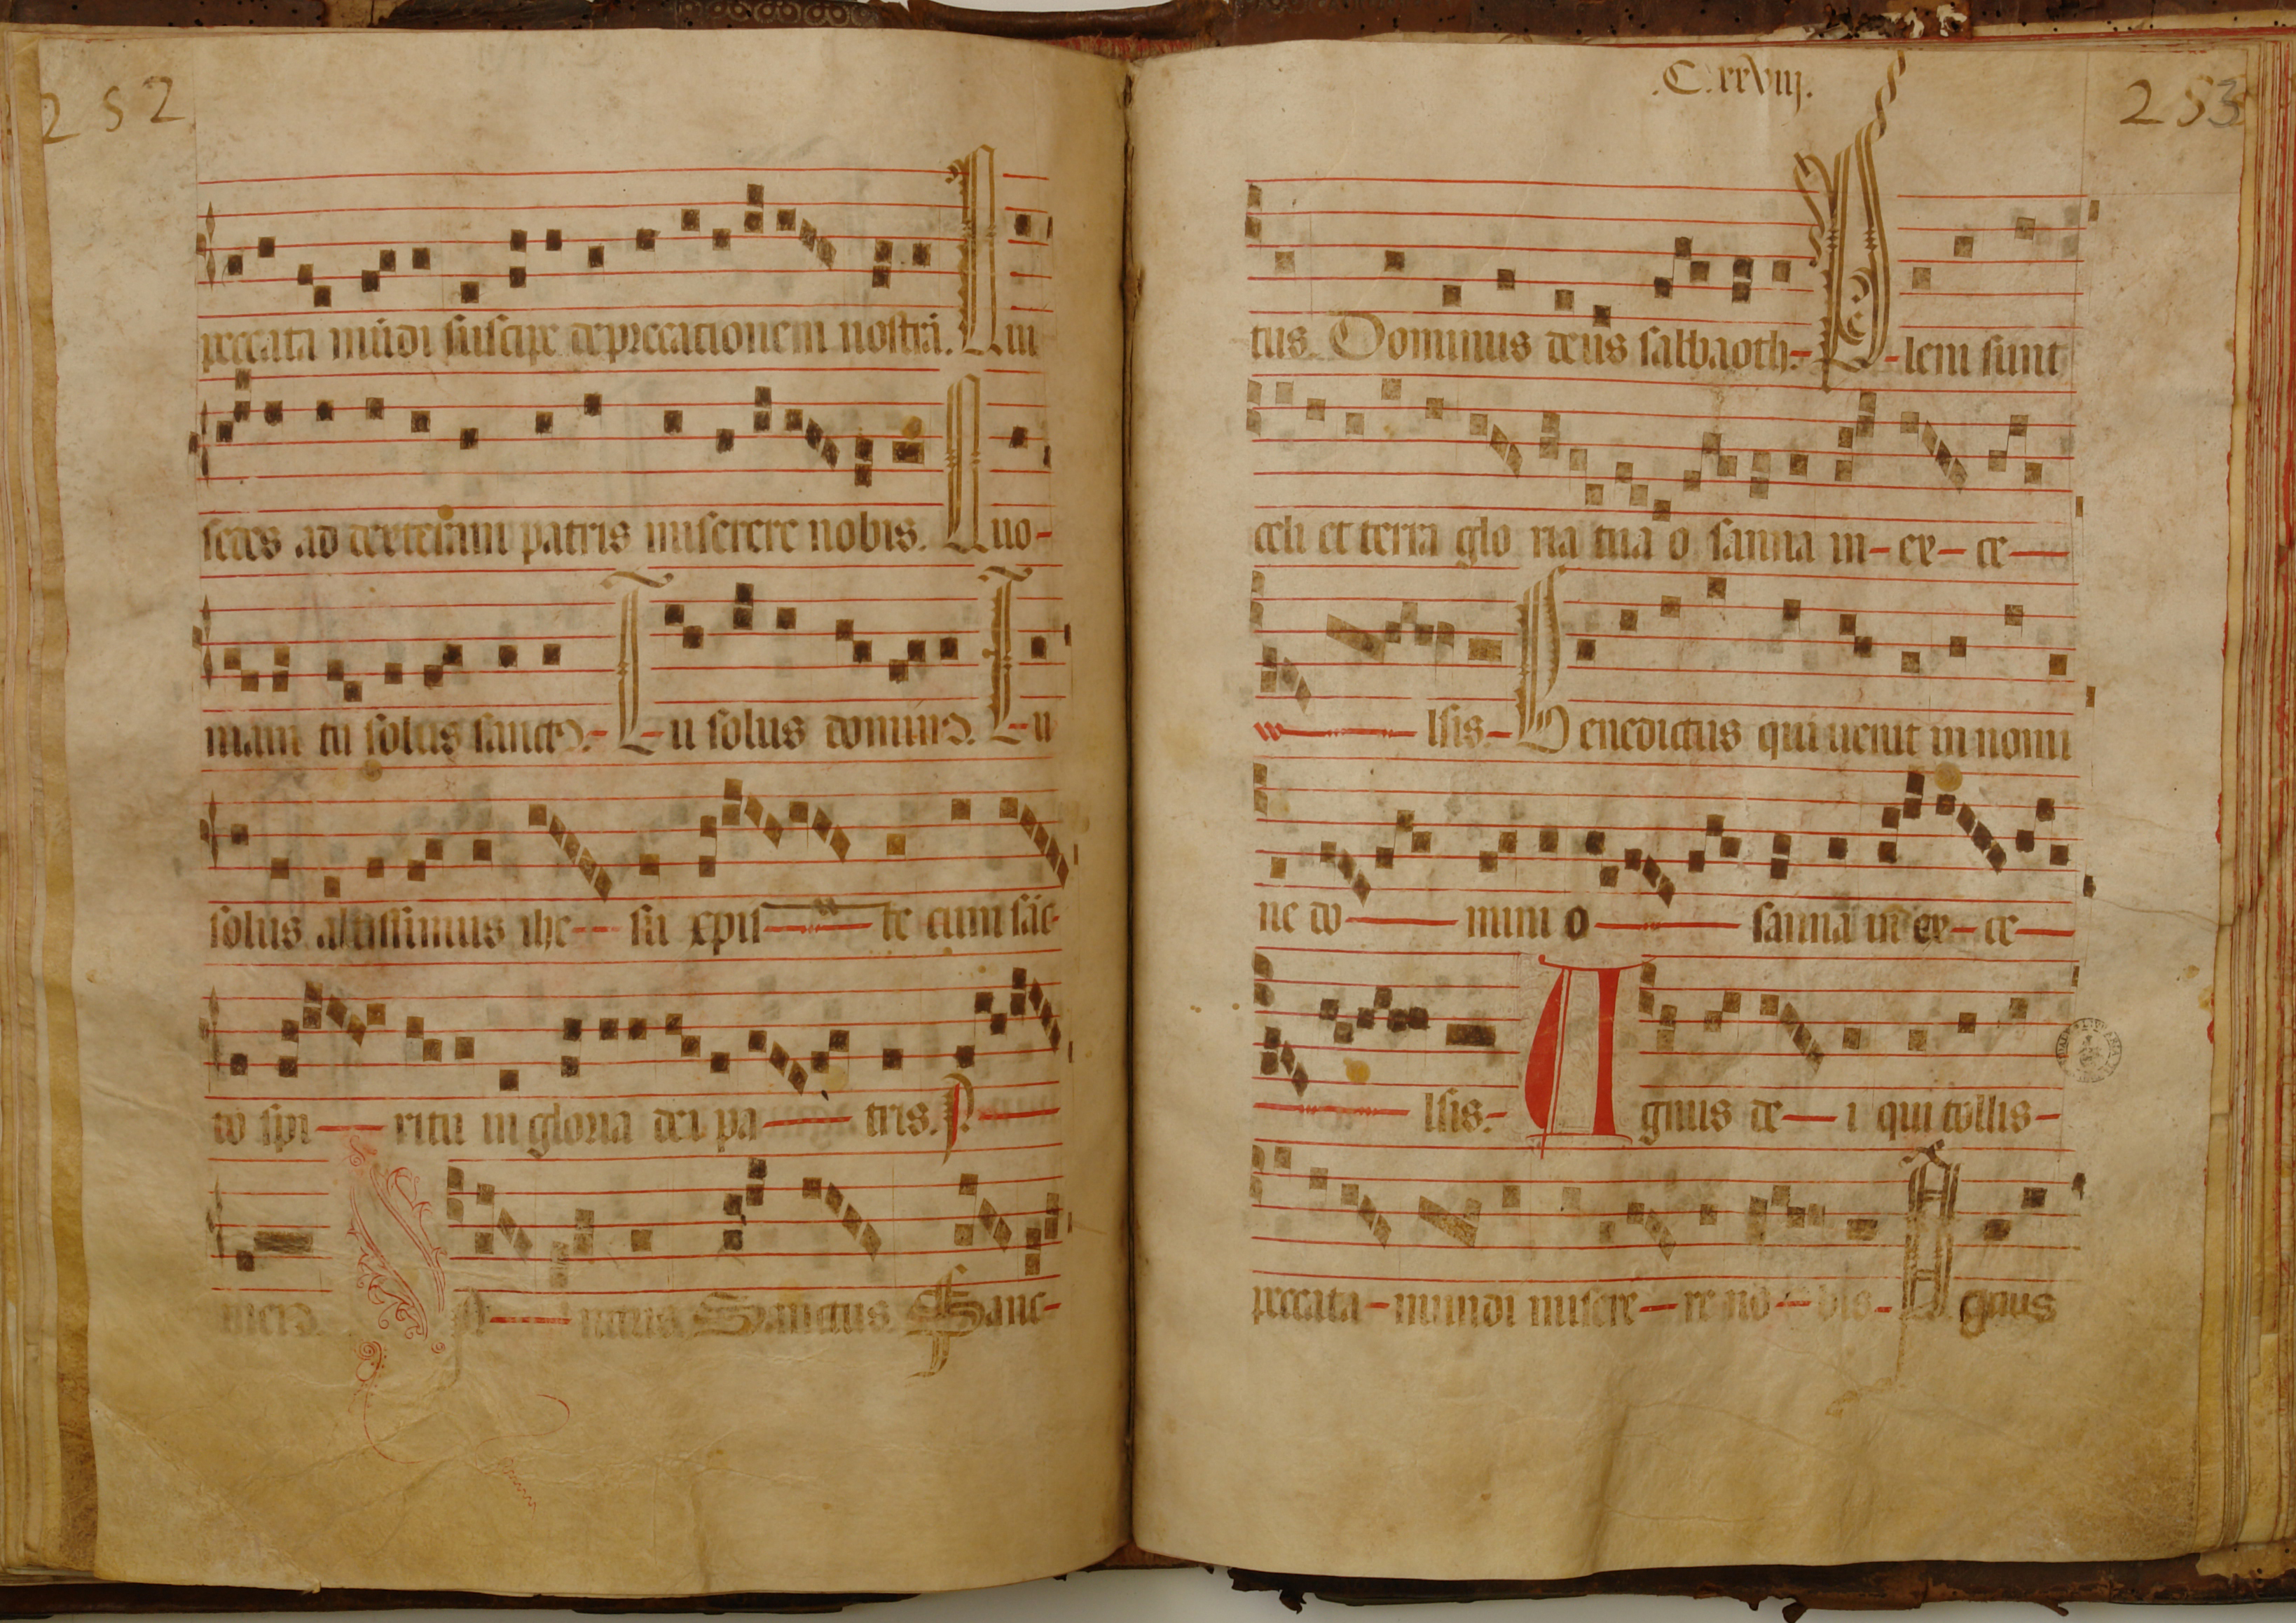 252
peccata mūdi suscipe deprecationem nostrā. Qui
sedes ad dexteram patris miserere nobis. Quo-
niam tu solus sanctꝰ. Tu solus dominꝰ. Tu
solus altissimus ihe su xpis te cum sāc-
to spi ritu in gloria dei pa tris.
menꝰ. Sa nctus Sanctus Sanc-
.C.xxviij.
253
tus. Dominus deus sabbaoth. Pleni sunt
celi et terra glo ria tua o sanna in ex ce
lsis. Benedictus qui uenit in nomi
ne do mini o sanna in ex ce
lsis. Agnus de i qui tollis
peccata mundi misere re no bis. Agnus